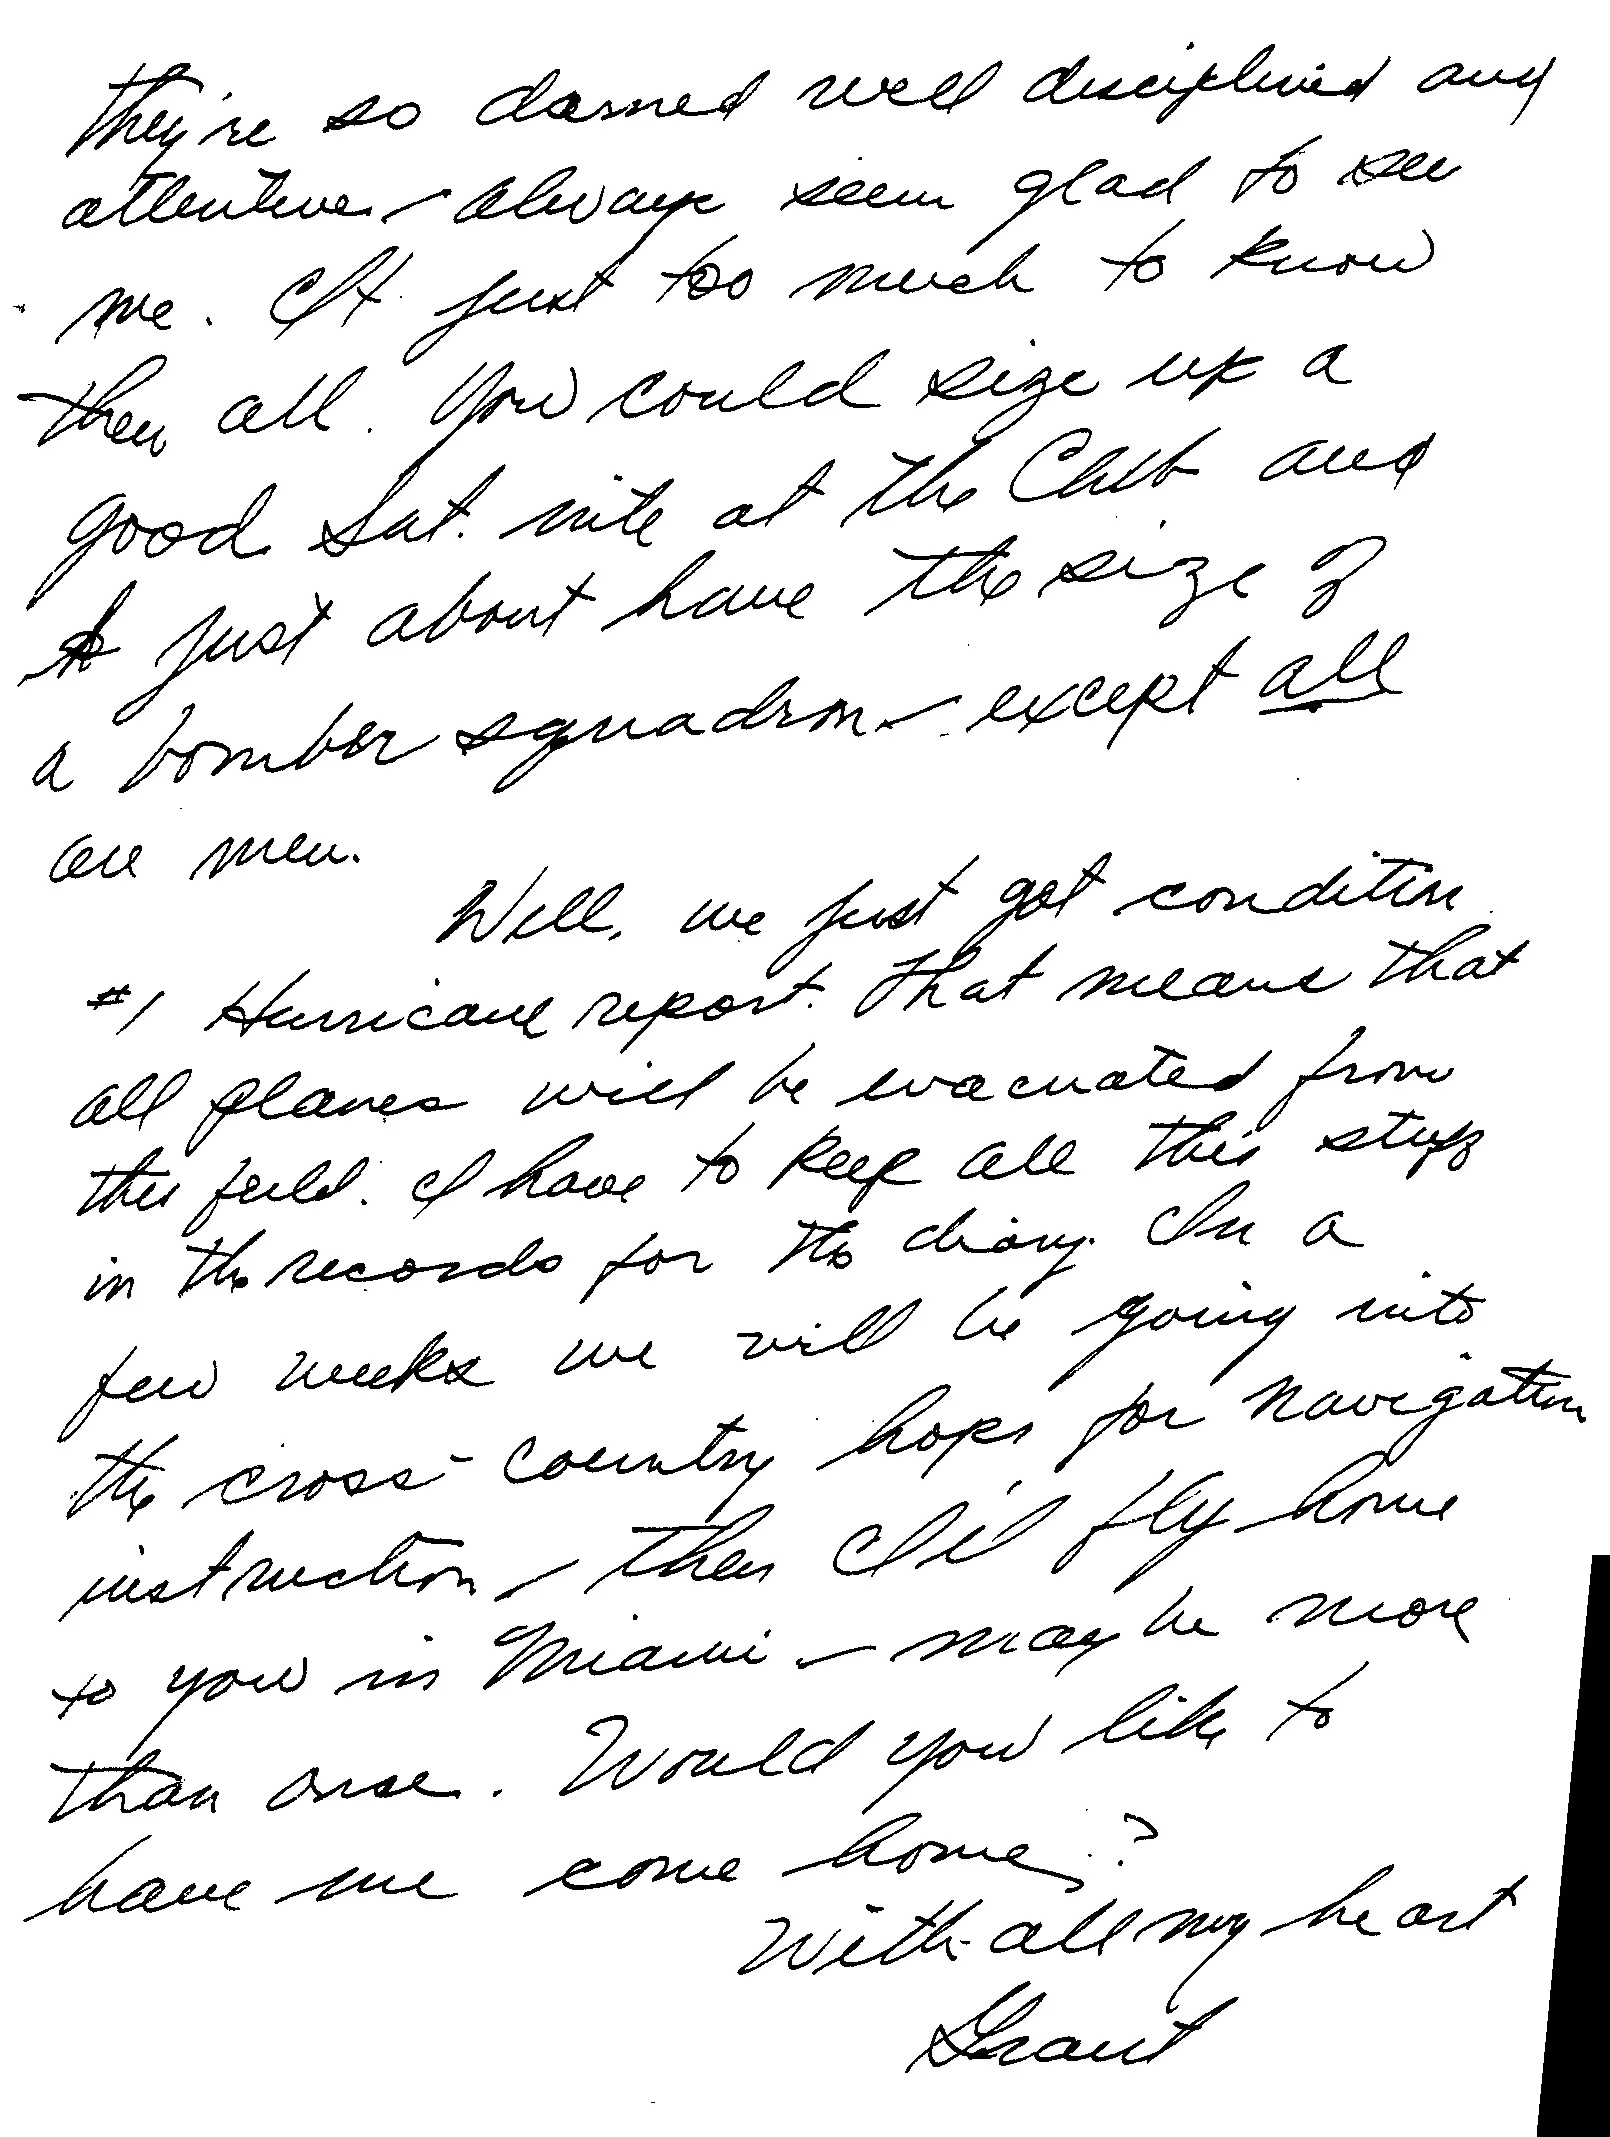 they're so darned well disciplined and
attentive - always seem glad to see
me. It just too much to know
them all. You could size up a
good Sat. nite at the Club and
just about have the size of
a bomber squadron - except all
are men.
Well, we just got condition
#1 Hurricane report. That means that
all planes will be evacuated from
this field. I have to keep all this stuff
in the records for the diary. In a
few weeks we will be going into
the cross-country hops for navigation
instruction - then I'll fly home
to you in Miami - maybe more
than once. Would you like to
have me come home?
With all my heart
Grant